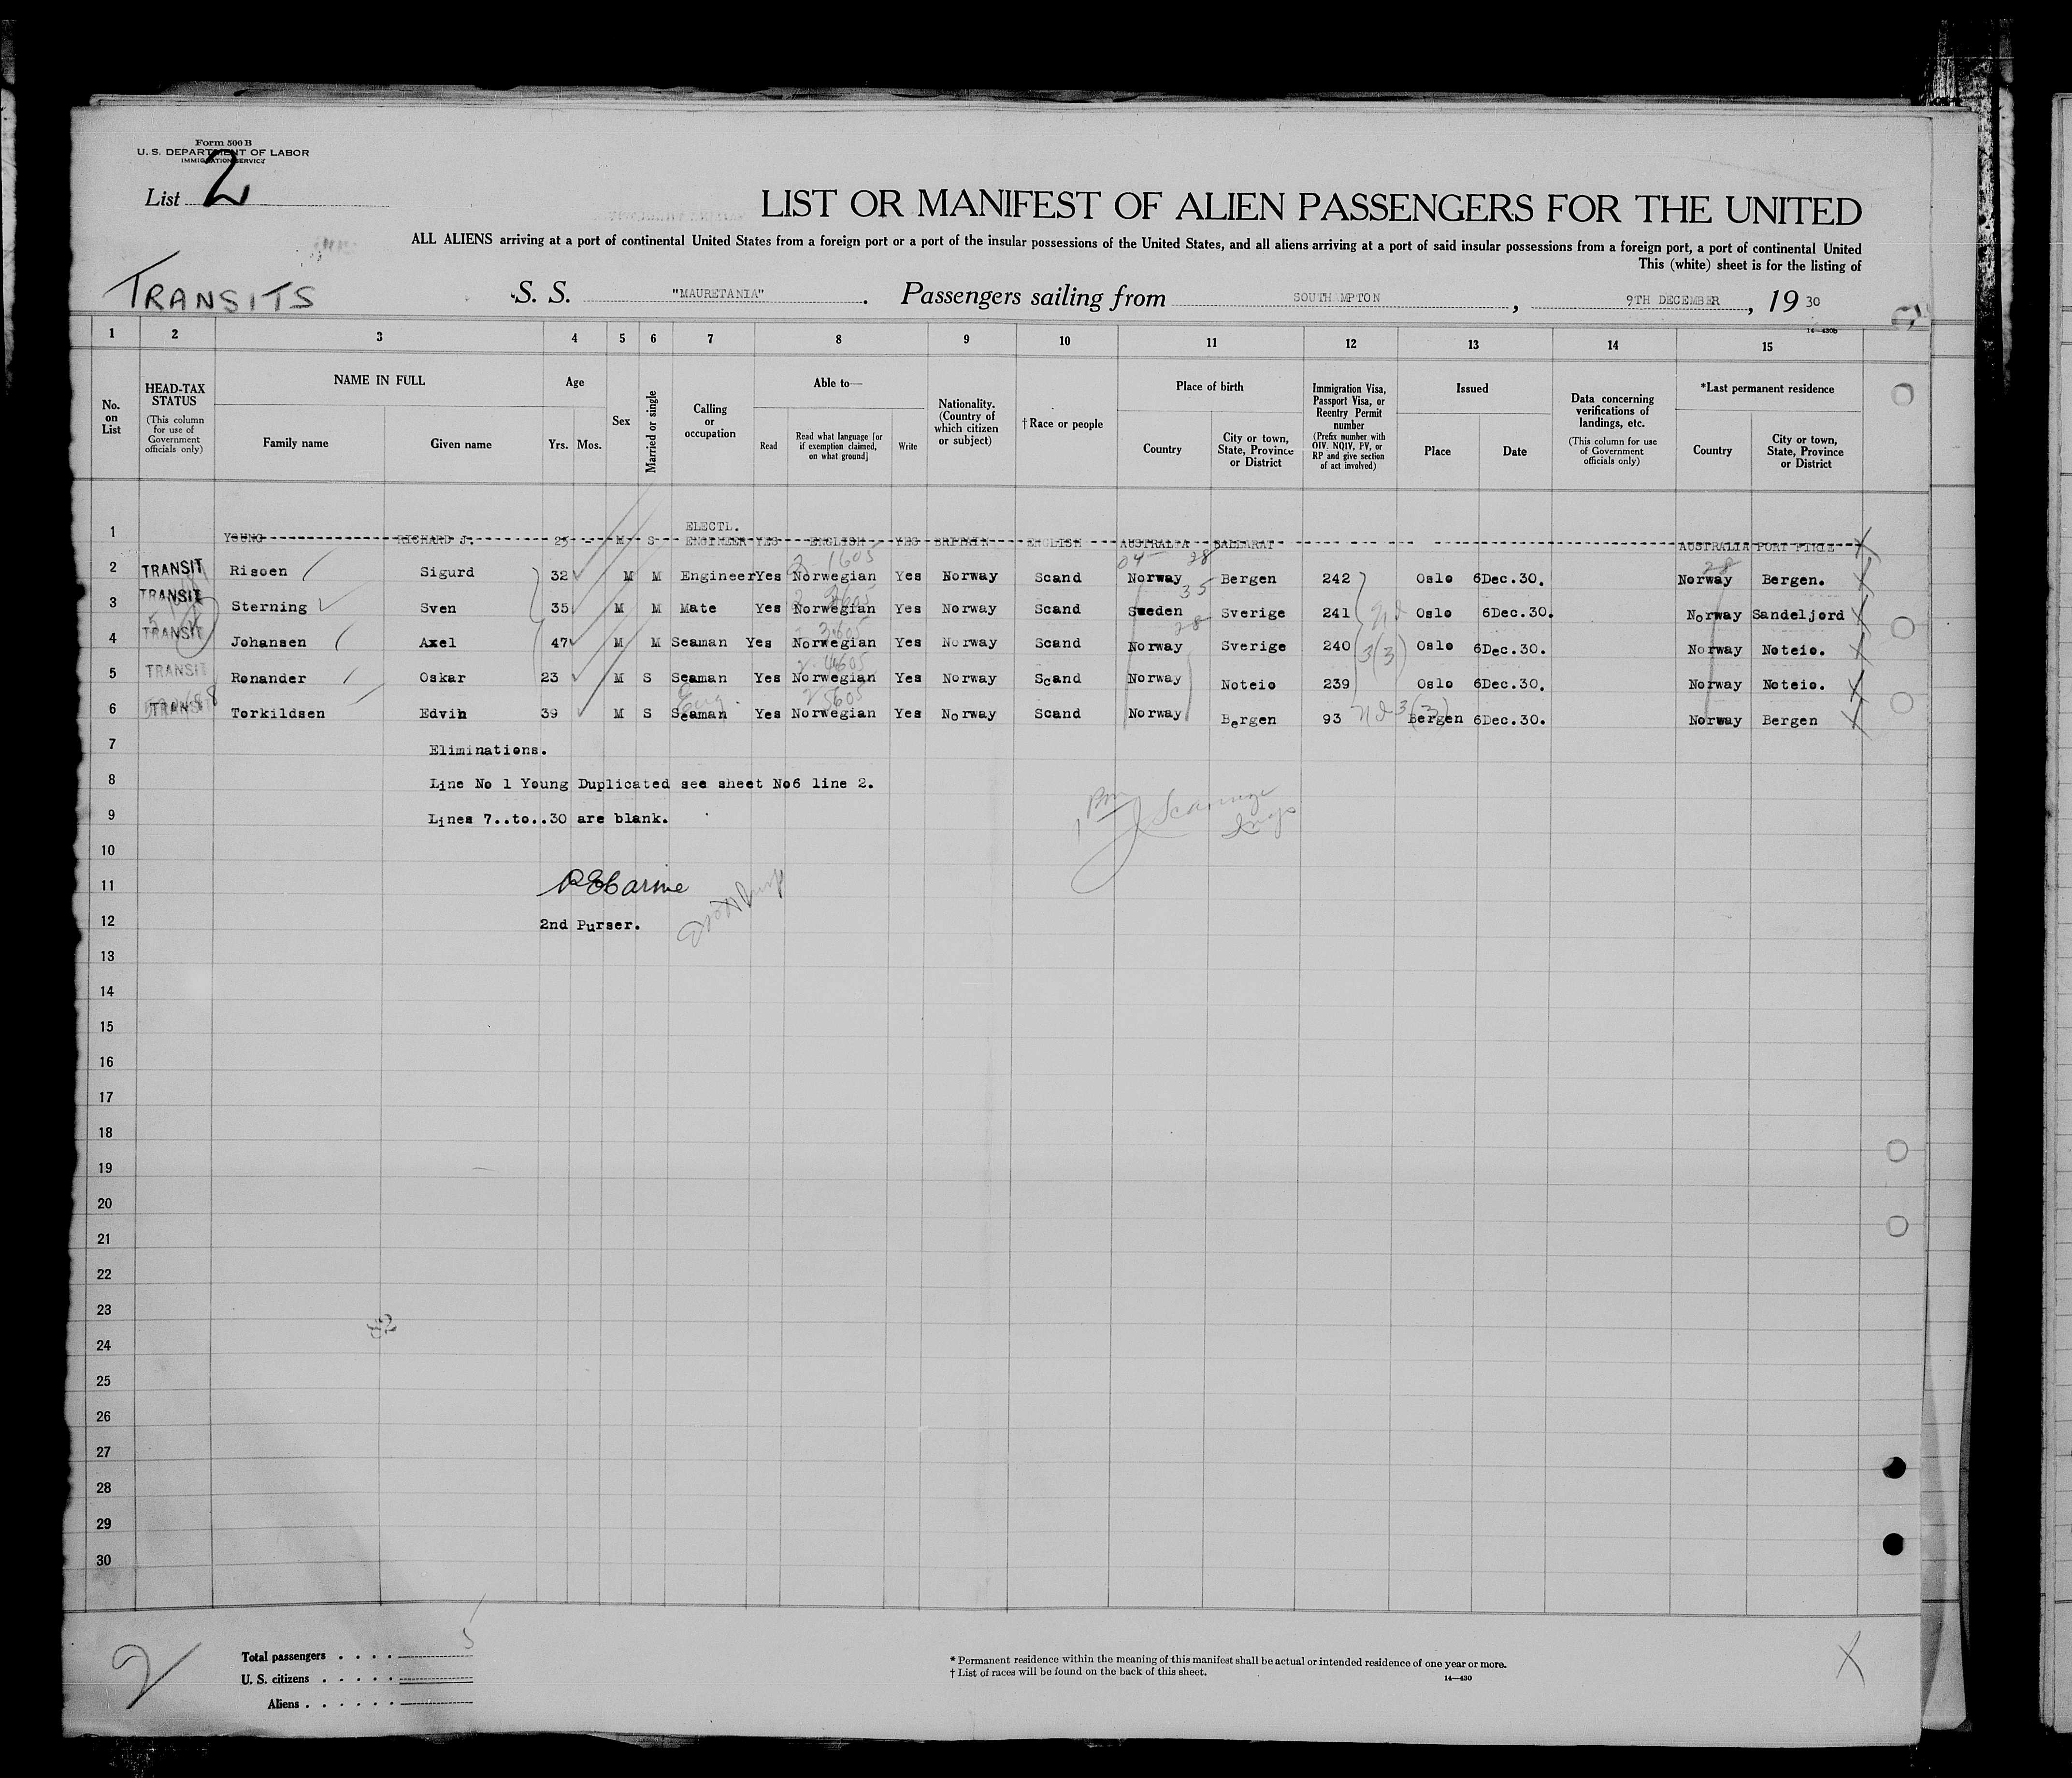 Form 500 B
U. S. DEPARTMENT OF LABOR
IMMIGRATION SERVICE
List 2
LIST OR MANIFEST OF ALIEN PASSENGERS FOR THE UNITED
ALL ALIENS arriving at a port of continental United States from a foreign port or a port of the insular possessions of the United States, and all aliens arriving at a port of said insular possessions from a foreign port, a port of continental United
This (white) sheet is for the listing of
TRANSITS
S. S. "MAURETANIA". Passengers sailing from SOUTHAMPTON, 9TH DECEMBER, 19 30
14—430b
1 2 3 4 5 6 7 8 9 10 11 12 13 14 15
No. on List
HEAD-TAX STATUS (This column for use of Government officials only)
NAME IN FULL
Family name
Given name
Age
Yrs. Mos.
Sex
Married or single
Calling or occupation
Able to—
Read
Read what language [or if exemption claimed, on what ground]
Write
Nationality. (Country of which citizen or subject)
†Race or people
Place of birth
Country
City or town, State, Province or District
Immigration Visa, Passport Visa, or Reentry Permit number (Prefix number with QIV, NQIV, PV, or RP and give section of act involved)
Issued
Place
Date
Data concerning verifications of landings, etc. (This column for use of Government officials only)
*Last permanent residence
Country
City or town, State, Province or District
1 YOUNG RICHARD J. 25 - M S ELECTL. ENGINEER YES ENGLISH YES BRITAIN ENGLISH AUSTRALIA BALLARAT AUSTRALIA PORT PIRIE
2 TRANSIT Risoen Sigurd 32 M M Engineer Yes Norwegian Yes Norway Scand Norway Bergen 242 Oslo 6Dec.30. Norway Bergen.
3 TRANSIT Sterning Sven 35 M M Mate Yes Norwegian Yes Norway Scand Sweden Sverige 241 Oslo 6Dec.30. Norway Sandeljord
4 TRANSIT Johansen Axel 47 M M Seaman Yes Norwegian Yes Norway Scand Norway Sverige 240 Oslo 6Dec.30. Norway Noteio.
5 TRANSIT Ronander Oskar 23 M S Seaman Yes Norwegian Yes Norway Scand Norway Noteio 239 Oslo 6Dec.30. Norway Noteio.
6 TRANSIT Torkildsen Edvin 39 M S Seaman Yes Norwegian Yes Norway Scand Norway Bergen 93 Bergen 6Dec.30. Norway Bergen
7 Eliminations.
8 Line No 1 Young Duplicated see sheet No6 line 2.
9 Lines 7..to..30 are blank.
10
11
12 2nd Purser.
13
14
15
16
17
18
19
20
21
22
23
24
25
26
27
28
29
30
2
Total passengers . . . . 5
U. S. citizens . . . . .
Aliens . . . . . .
* Permanent residence within the meaning of this manifest shall be actual or intended residence of one year or more.
† List of races will be found on the back of this sheet.
14—430
X